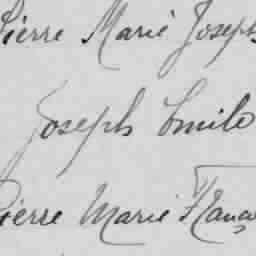 Pierre Marie Joseph
Joseph Emile
Pierre Marie Franç